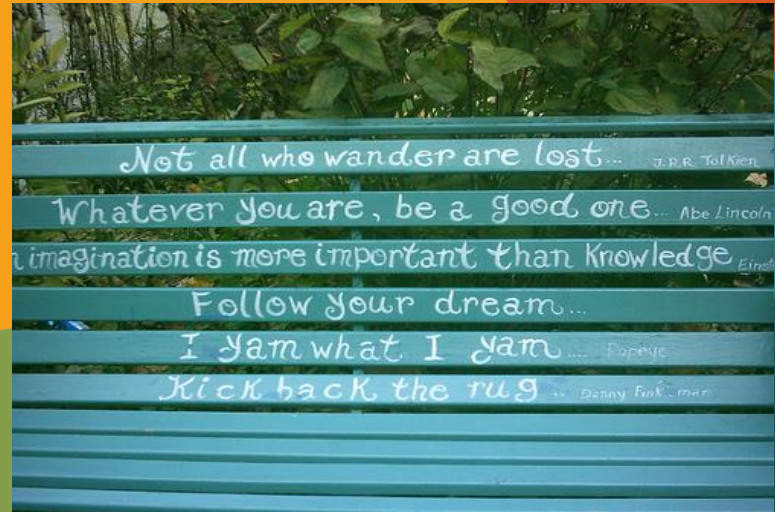 Not all who wander are lost... J.R.R. Tolkien
Whatever you are, be a good one... Abe Lincoln
imagination is more important than Knowledge
Follow your dream...
I yam what I yam.... Popeye
Kick back the rug .. Danny